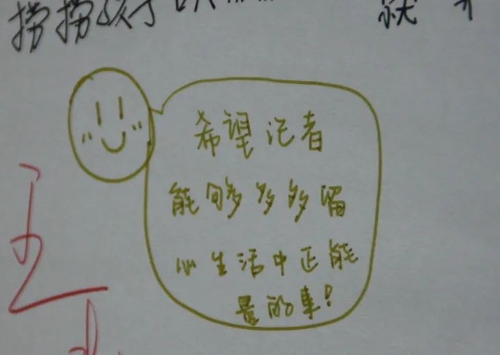 捞捞
希望记者
能够多多多留
心生活中正能
量的事!